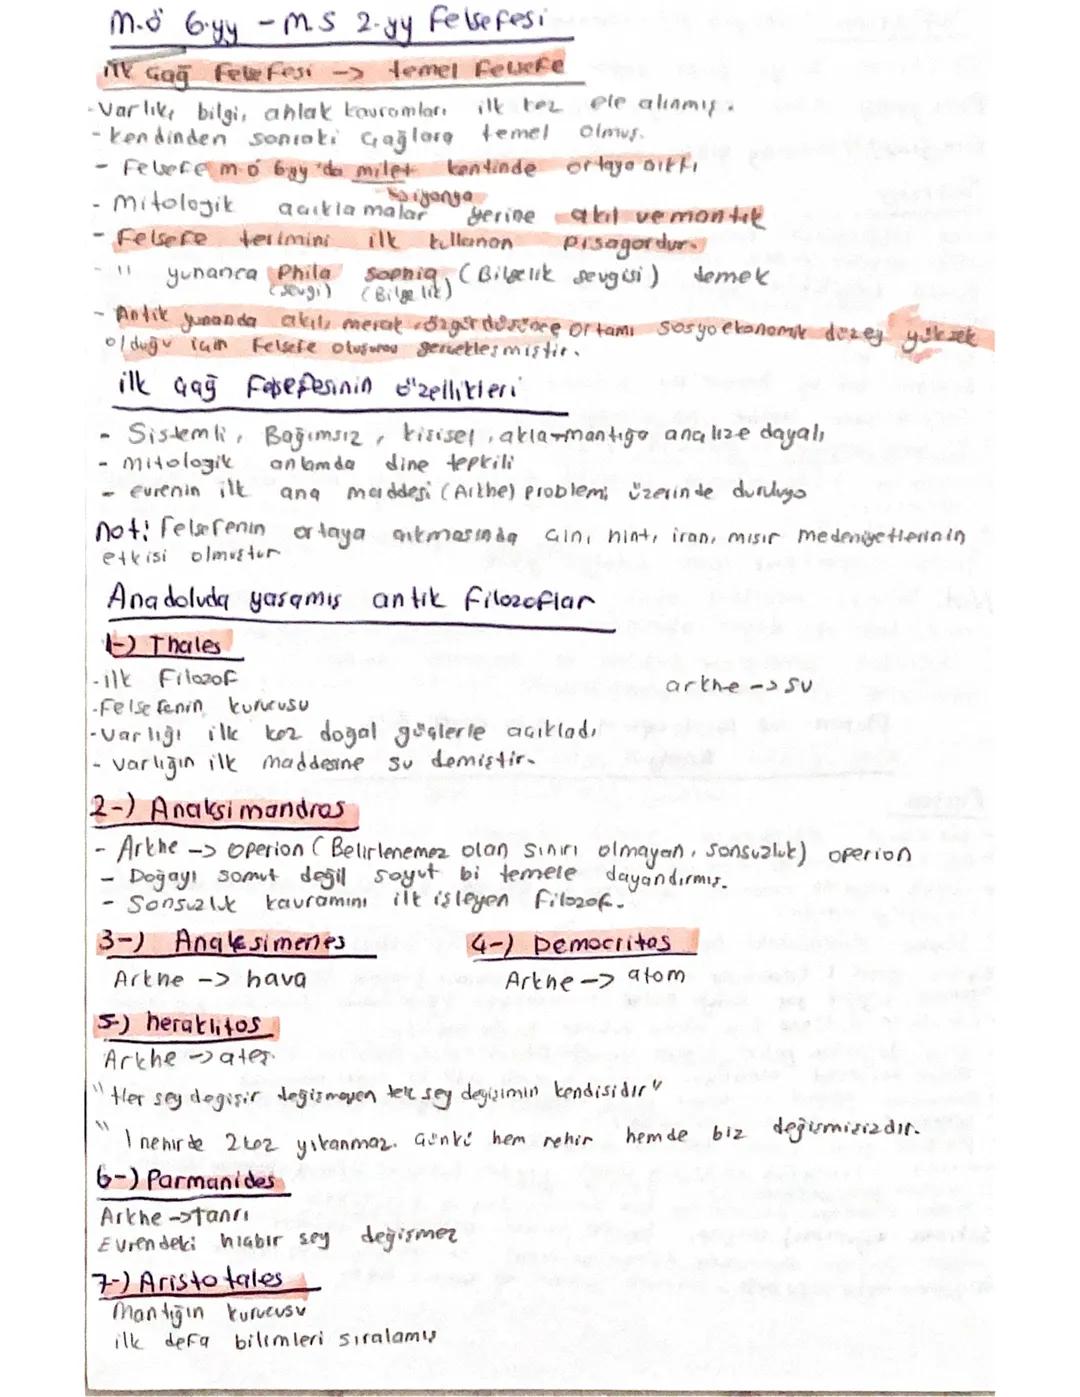 M.Ö 6.yy - M.S 2.yy Felsefesi
ilk Çağ Felsefesi -> temel Felsefe
- Varlık, bilgi, ahlak kavramları ilk kez ele alınmış.
- kendinden sonraki Çağlara temel olmuş.
- Felsefe m.ö 6yy 'da milet kentinde ortaya çıktı
↳ iyonya
- Mitolojik açıklamalar yerine akıl ve mantık
- Felsefe terimini ilk kullanan Pisagordur.
- " yunanca Phila sophia (Bilgelik sevgisi) demek
(sevgi) (Bilgelik)
- Antik yunanda akıl, merak, özgür düşünce ortamı sosyoekonomik düzey yüksek
olduğu için Felsefe oluşumu gerçekleşmiştir.
ilk Çağ Felsefesinin özellikleri
- Sistemli, Bağımsız, kişisel, akla-mantığa analize dayalı
- mitolojik anlamda dine tepkili
- evrenin ilk ana maddesi (Arkhe) problemi üzerinde duruluyo
not: Felsefenin ortaya çıkmasında Çin, hint, iran, mısır medeniyetlerinin
etkisi olmuştur
Anadoluda yaşamış antik Filozoflar
1-) Thales
- ilk Filozof
arkhe -> su
- Felsefenin kurucusu
- Varlığı ilk kez doğal güçlerle açıkladı
- varlığın ilk maddesine su demiştir.
2-) Anaksimandros
- Arkhe -> operion (Belirlenemez olan sınırı olmayan, sonsuzluk) operion
- Doğayı somut değil soyut bi temele dayandırmış.
- Sonsuzluk kavramını ilk işleyen Filozof.
3-) Anaksimenes
Arkhe -> hava
4-) Democritos
Arkhe -> atom
5-) heraklitos
Arkhe -> ateş.
"Her şey değişir değişmeyen tek şey değişimin kendisidir"
" 1 nehirde 2 kez yıkanmaz. Çünkü hem nehir hemde biz değişmişizdir.
6-) Parmanides
Arkhe -> Tanrı
Evrendeki hiçbir şey değişmez
7-) Aristotales
Mantığın kurucusu
ilk defa bilimleri sıralamış